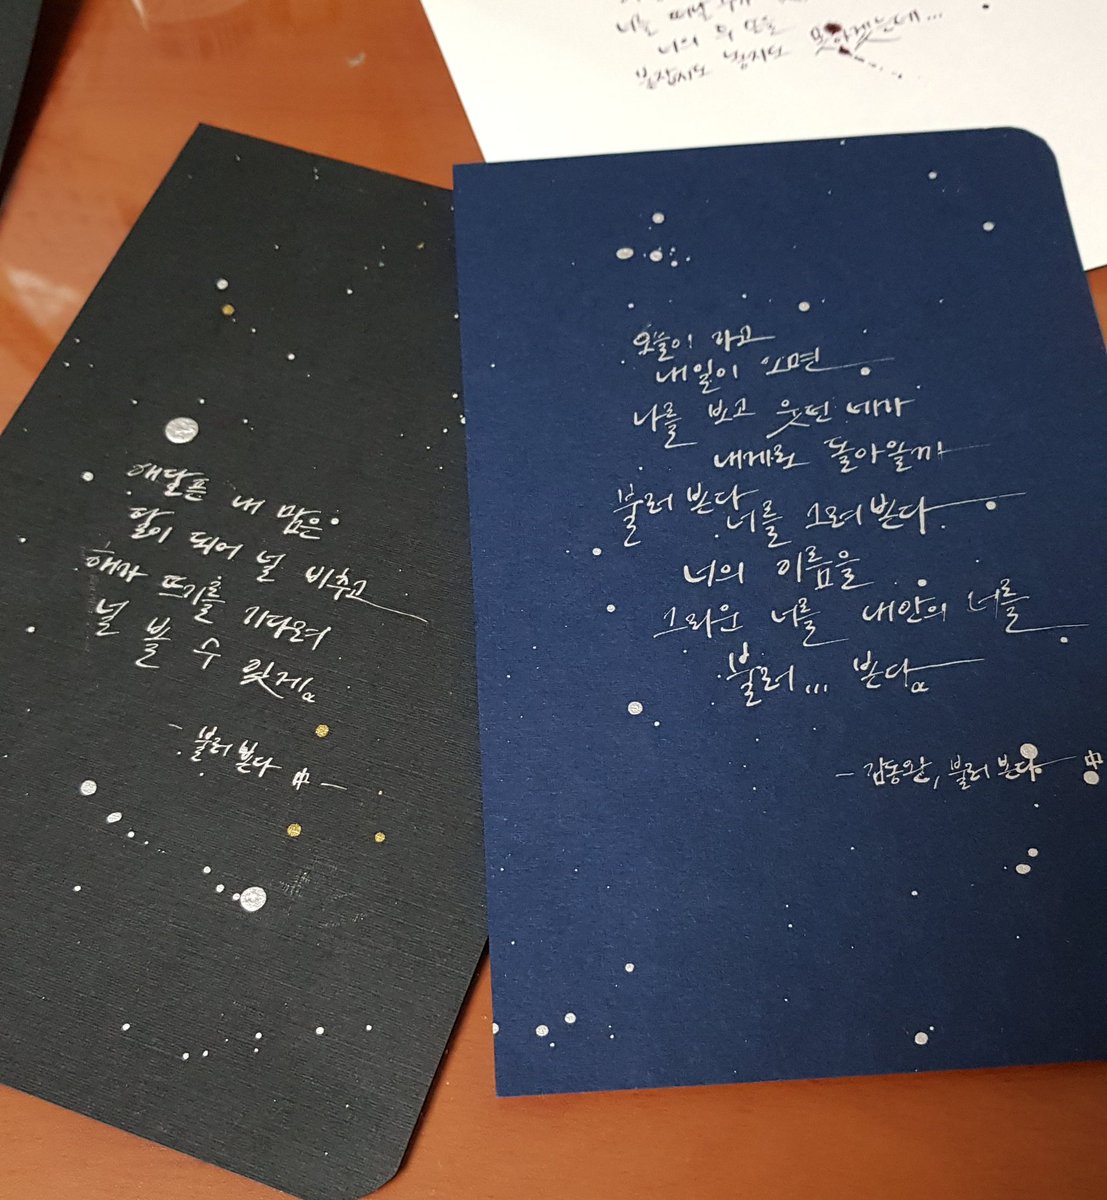 너의 뒤
붙잡지도 놓지도 못하겠는데...
애달픈 내 맘은
달이 되어 널 비추고
해가 뜨기를 기다려
널 볼 수 있게
- 불러본다 中 -
오늘이 가고
내일이 오면
나를 보고 웃던 네가
내게로 돌아올까
불러본다 너를 그려본다
너의 이름을
그리운 너를 내안의 너를
불러... 본다
- 김동완, 불러본다 中